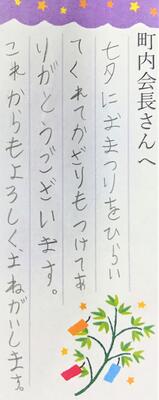 町内会長さんへ
七夕にずまつりをひらい
てくれてかざりもつけてあ
りがとうございます。
これからもよろしくおねがいします。